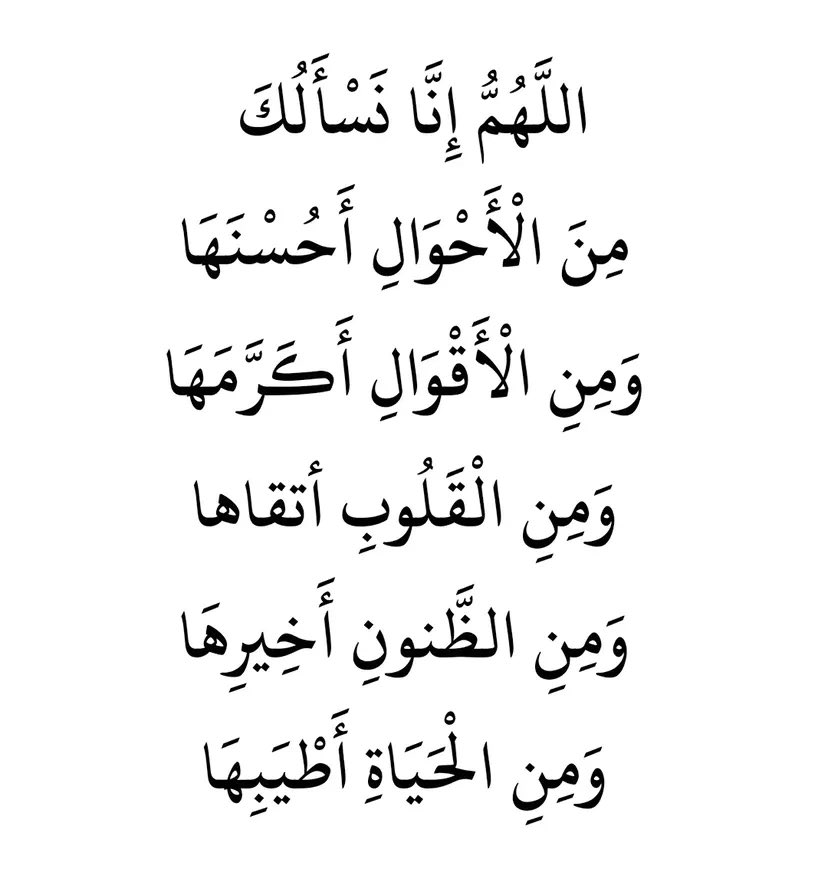 اللَّهُمُّ إِنَّا نَسْأَلُكَ
مِنَ الْأَحْوَالِ أَحُسْنَهَا
وَمِنِ الْأَقْوَالِ أَكَرَّمَهَا
وَمِنِ الْقَلُوبِ أتقاها
وَمِنِ الظَّنونِ أَخِيرِهَا
وَمِنِ الْحَيَاةِ أَطْيَبِهَا